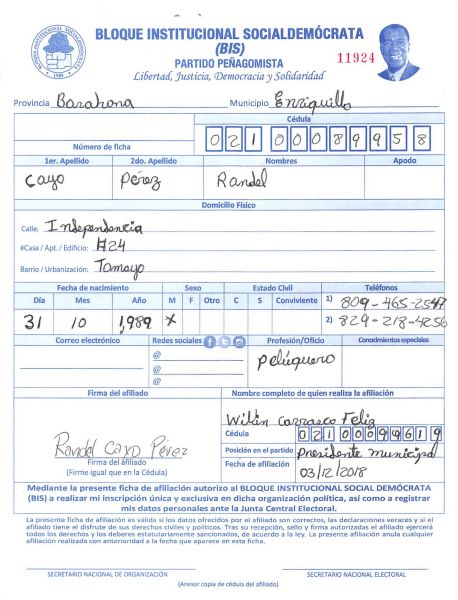 BLOQUE INSTITUCIONAL SOCIALDEMÓCRATA
(BIS)
PARTIDO PEÑAGOMISTA
Libertad, Justicia, Democracia y Solidaridad
11924
BLOQUE INSTITUCIONAL SOCIALDEMOCRATA
Provincia Barahona Municipio Enriquillo
Cédula
Número de ficha 02100089958
1er. Apellido 2do. Apellido Nombres Apodo
Cayo Pérez Randel
Domicilio Físico
Calle: Independencia
#Casa / Apt. / Edificio: #24
Barrio / Urbanización: Tamayo
Fecha de nacimiento Sexo Estado Civil Teléfonos
Día Mes Año M F Otro C S Conviviente 1) 809-465-2547
31 10 1,989 x 2) 829-218-4256
Correo electrónico Redes sociales Profesión/Oficio Conocimientos especiales
@ Pelúquero
@
@
Firma del afiliado Nombre completo de quien realiza la afiliación
Wilín Carrasco Feliz
Cédula 02100099619
Randel Cayo Pérez Posición en el partido Presidente municipal
Firma del afiliado Fecha de afiliación 03/12/2018
(Firme igual que en la Cédula)
Mediante la presente ficha de afiliación autorizo al BLOQUE INSTITUCIONAL SOCIAL DEMÓCRATA
(BIS) a realizar mi inscripción única y exclusiva en dicha organización política, así como a registrar
mis datos personales ante la Junta Central Electoral.
La presente ficha de afiliación es válida si los datos ofrecidos por el afiliado son correctos, las declaraciones veraces y si el
afiliado tiene el disfrute de sus derechos civiles y políticos. Tras su recepción, sello y firma autorizados el afiliado ejercerá
todos los derechos y los deberes estatutariamente sancionados, de acuerdo a la ley. La presente afiliación anula cualquier
afiliación realizada con anterioridad a la fecha que aparece en esta ficha.
SECRETARIO NACIONAL DE ORGANIZACIÓN SECRETARIO NACIONAL ELECTORAL
(Anexar copia de cédula del afiliado)